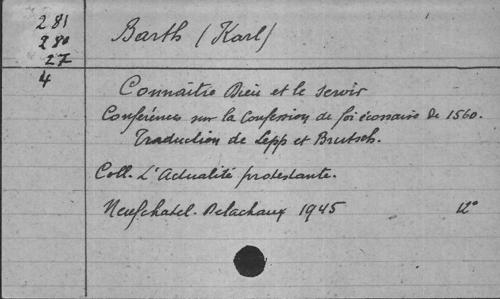 281
280
27
4
Barth (Karl)
Connaître Dieu et le servir
Conférences sur la Confession de foi écossaise de 1560.
Traduction de Lepp et Brutsch.
Coll. L'Actualité protestante.
Neufchatel. Delachaux 1945 12°